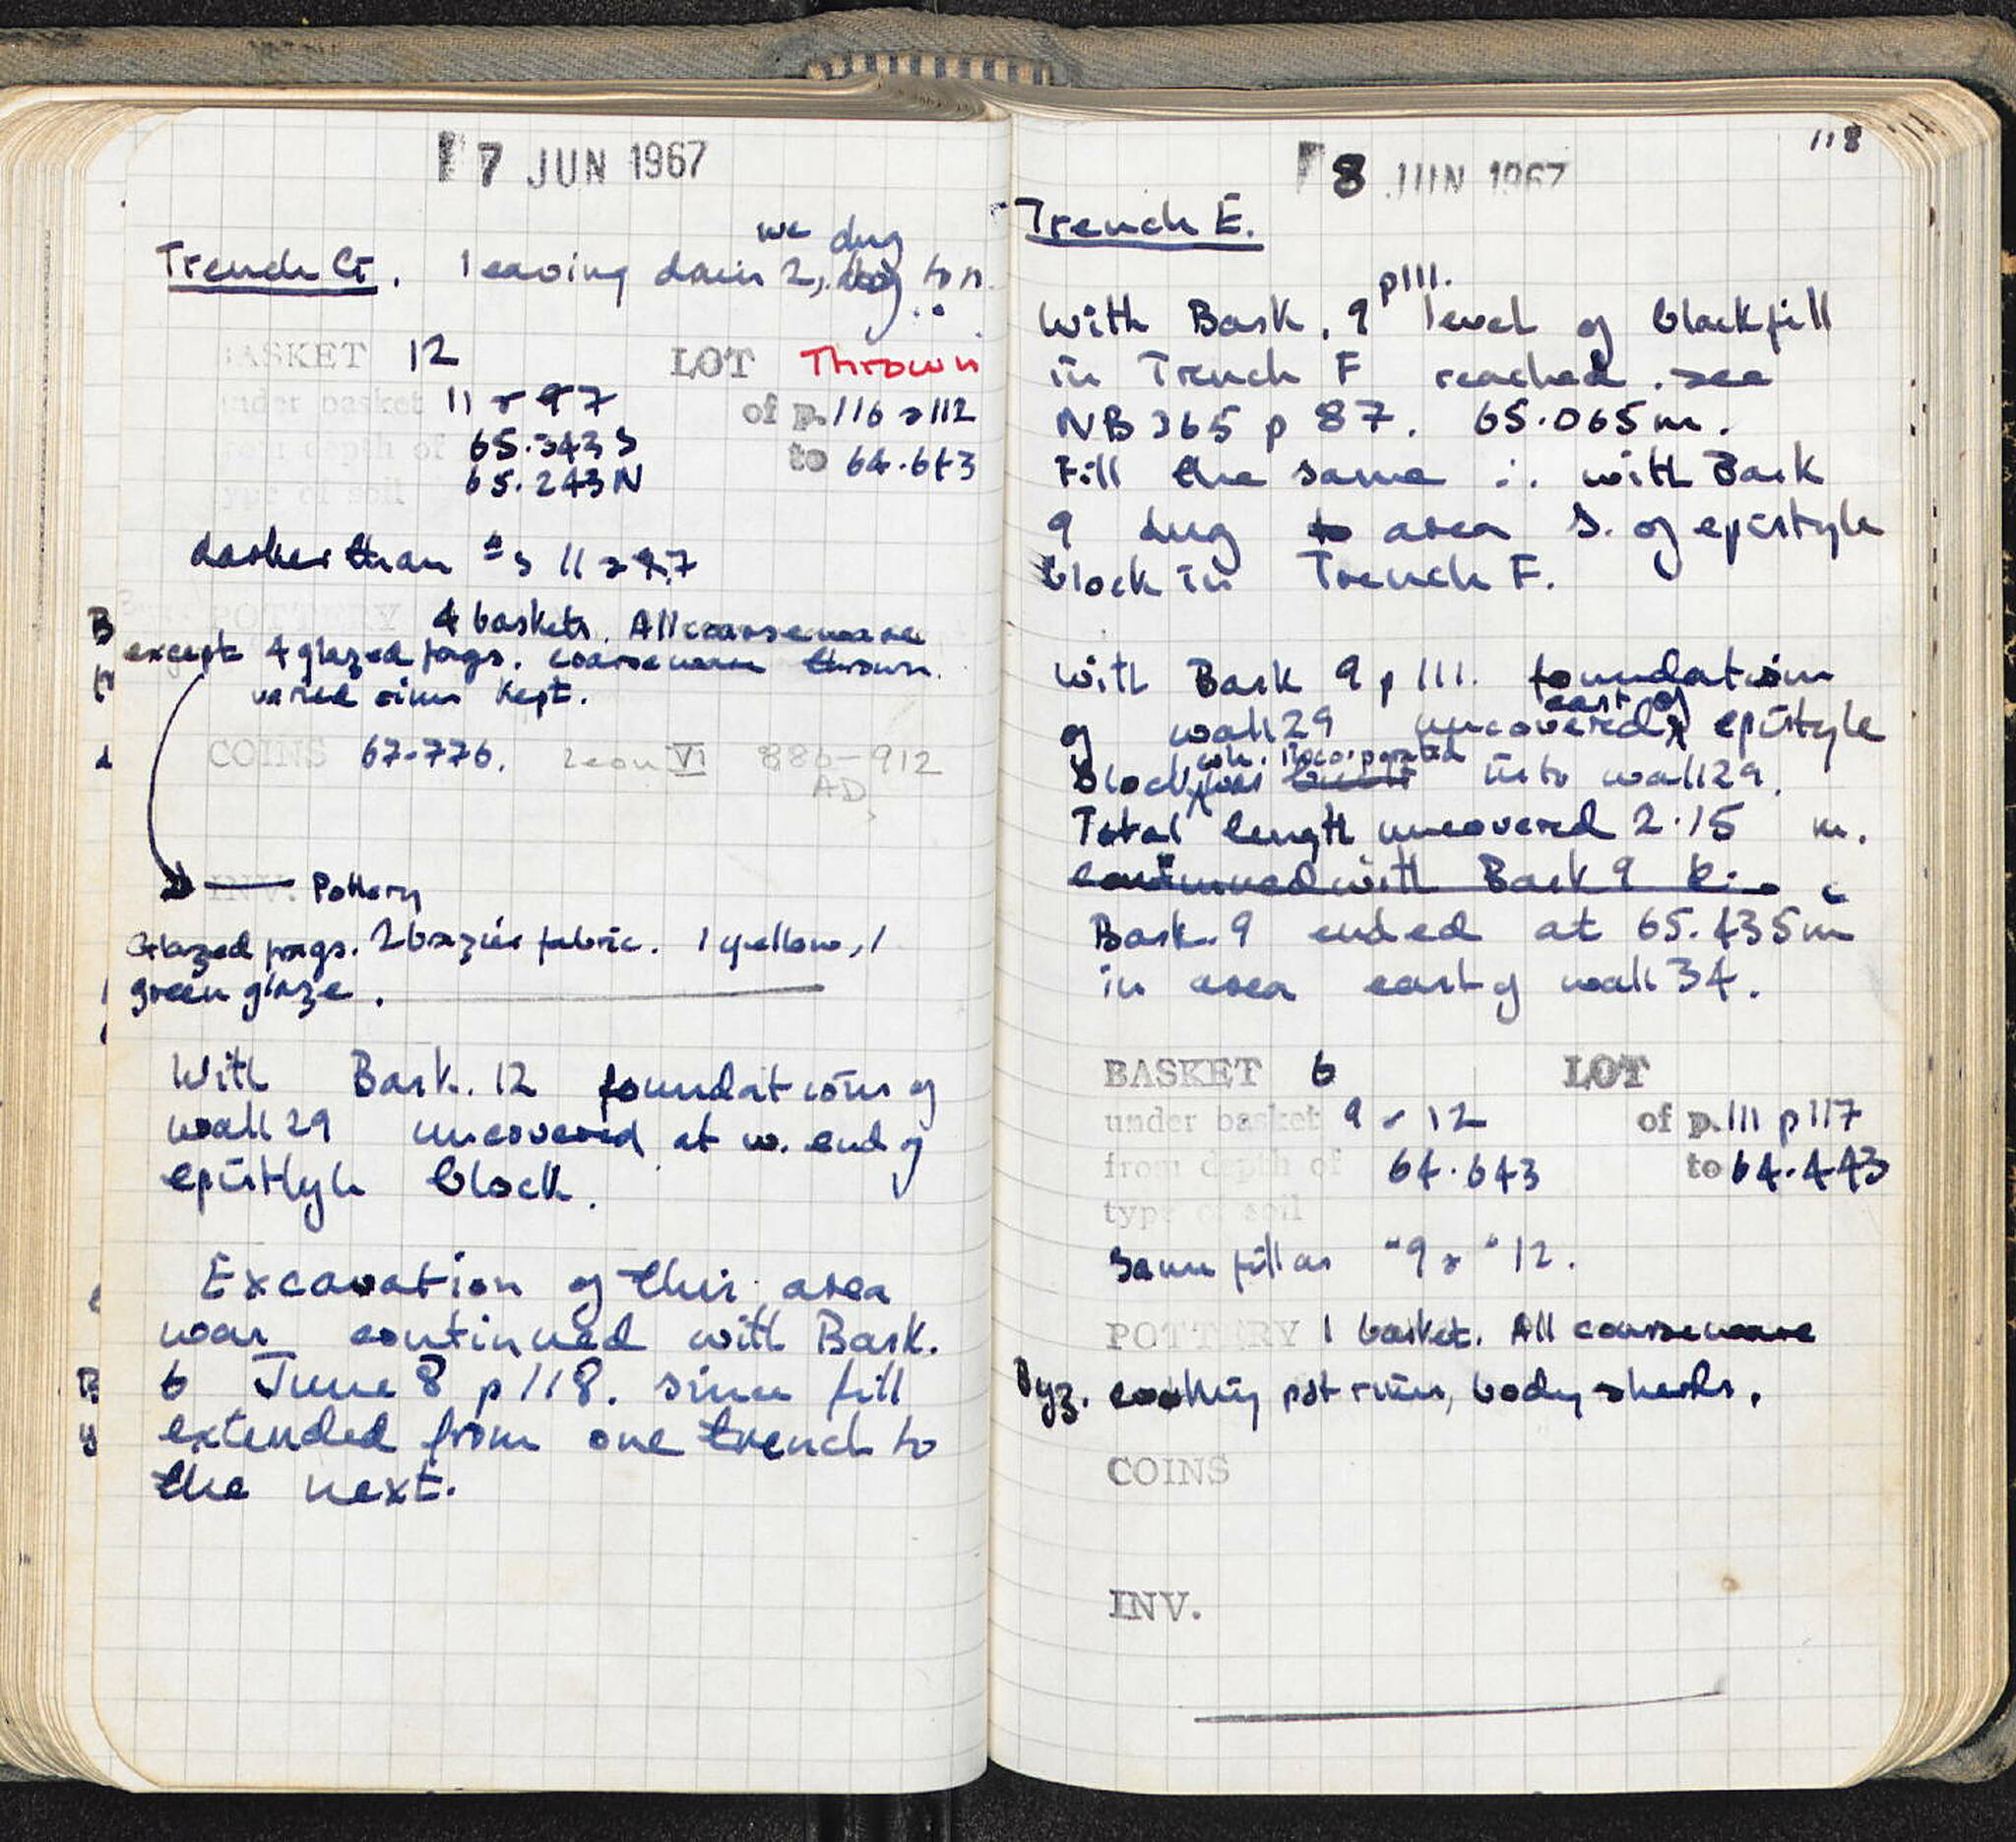 7 JUN 1967
we dug
Trench G. leaving drain 2, to n.
BASKET 12 LOT Thrown
under basket 11 & 97 of p. 116 & 112
from depth of 65.343 S to 64.643
65.243 N
type of soil
darker than #s 11 & 97
POTTERY 4 baskets. All coarseware
except 4 glazed frags. coarseware thrown.
varied rims kept.
COINS 67-776. Leon VI 886-912
AD.
INV. Pottery
Glazed frags. 2 brazier fabric. 1 yellow, 1
green glaze.
With Bask. 12 foundations of
wall 29 uncovered at w. end of
epistlyle block.
Excavation of this area
was continued with Bask.
6 June 8 p 118. since fill
extended from one trench to
the next.
118
8 JUN 1967
Trench E.
With Bask. 9 p111. level of blackfill
in Trench F reached. see
NB 365 p 87. 65.065 m.
Fill the same ∴ with Bask
9 dug to area S. of epistyle
block in Trench F.
With Bask 9 p 111. foundation
of wall 29 uncovered east of epistyle
block, wh. incorporated was built into wall 29.
Total length uncovered 2.15 m.
continued with Bask 9
Bask. 9 ended at 65.435 m
in area east of wall 34.
BASKET 6 LOT
under basket 9 & 12 of p. 111 p 117
from depth of 64.643 to 64.443
type of soil
Same fill as "9 & "12.
POTTERY 1 basket. All coarseware
Byz. cooking pot rims, body sherds.
COINS
INV.